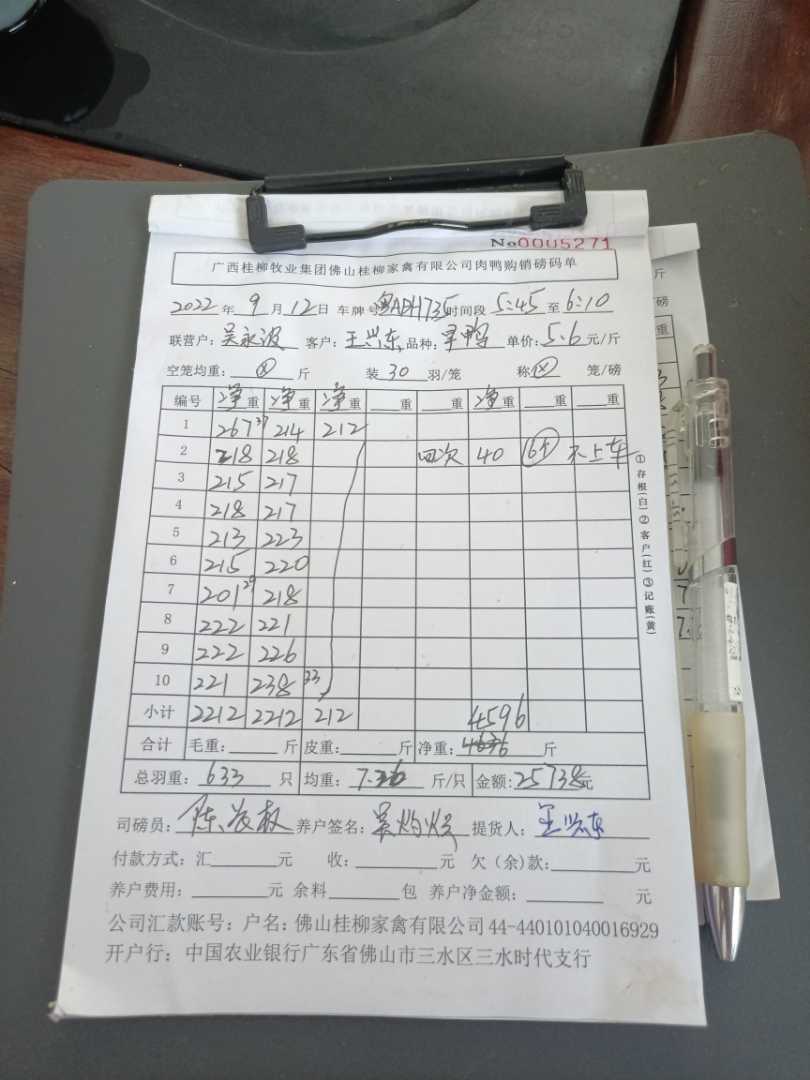 No0005271
广西桂柳牧业集团佛山桂柳家禽有限公司肉鸭购销磅码单
2022年 9月 12日 车牌号 粤ADH735 时间段 5:45 至 6:10
联营户: 吴永波 客户: 王兴东 品种: 早鸭 单价: 5.6 元/斤
空笼均重: 斤 装 30 羽/笼 称 笼/磅
编号 净重 净重 净重 重 重 净重 重 重
1 267 37 214 212
2 218 218 四次 40 6个 不上车
3 215 217
4 218 217
5 213 223
6 215 220
7 201 29 218
8 222 221
9 222 226
10 221 238 33
小计 2212 2212 212 4596
合计 毛重: 斤 皮重: 斤 净重: 4636 斤
总羽重: 633 只 均重: 7.26 斤/只 金额: 25738元
①存根(白)②客户(红)③记账(黄)
司磅员: 养户签名: 提货人: 王兴东
付款方式: 汇 元 收: 元 欠(余)款: 元
养户费用: 元 余料 包 养户净金额: 元
公司汇款账号: 户名: 佛山桂柳家禽有限公司 44-440101040016929
开户行: 中国农业银行广东省佛山市三水区三水时代支行
斤
磅
重